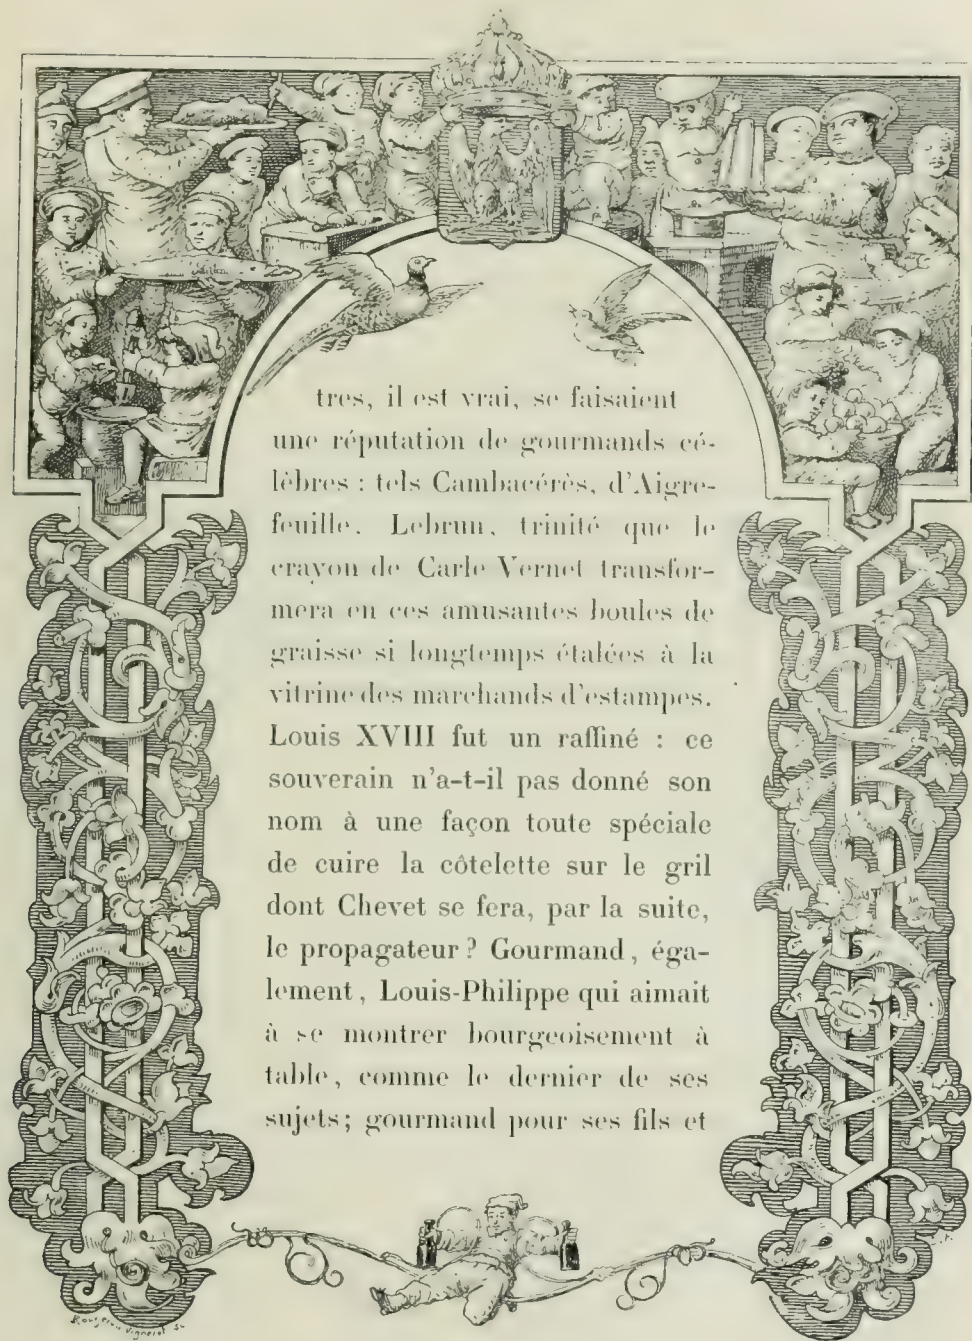 tres, il est vrai, se faisaient
une réputation de gourmands cé-
lèbres : tels Cambacérès, d'Aigre-
feuille, Lebrun, trinité que le
crayon de Carle Vernet transfor-
mera en ces amusantes boules de
graisse si longtemps étalées à la
vitrine des marchands d'estampes.
Louis XVIII fut un raffiné : ce
souverain n'a-t-il pas donné son
nom à une façon toute spéciale
de cuire la côtelette sur le gril
dont Chevet se fera, par la suite,
le propagateur ? Gourmand, éga-
lement, Louis-Philippe qui aimait
à se montrer bourgeoisement à
table, comme le dernier de ses
sujets; gourmand pour ses fils et